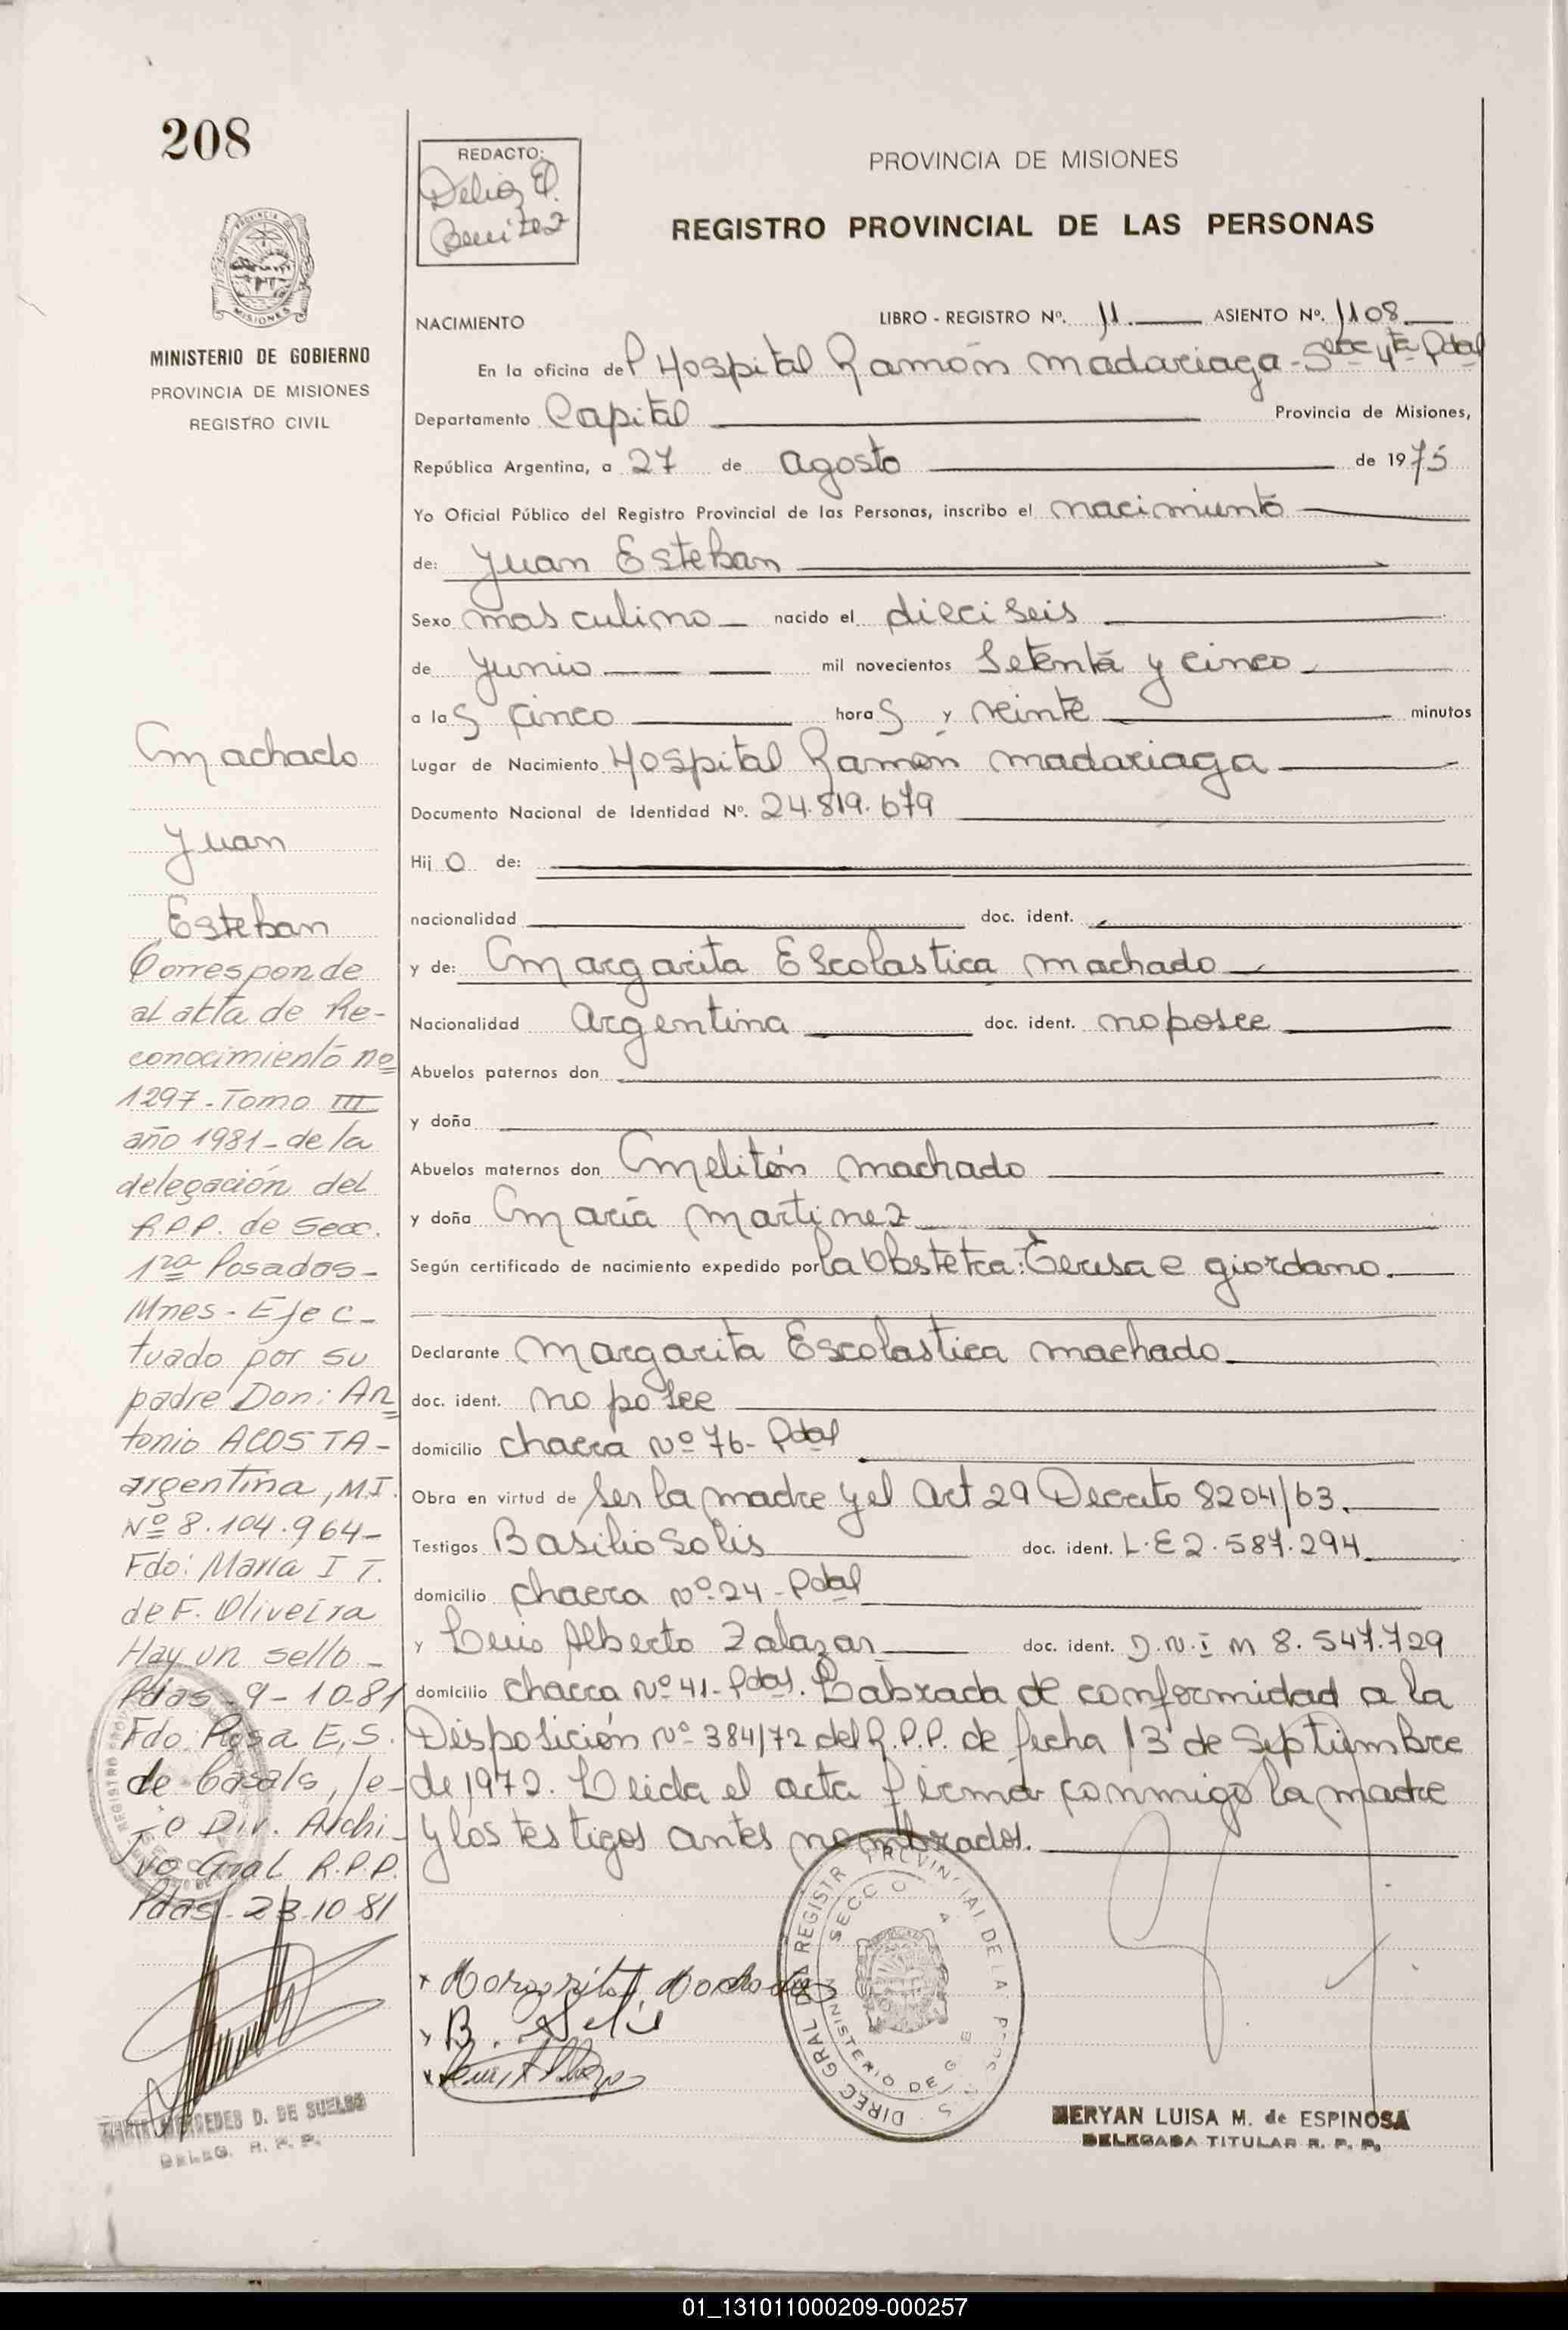 208
REDACTO:
Delia E.
Benitez
PROVINCIA DE MISIONES
REGISTRO PROVINCIAL DE LAS PERSONAS
MISIONES
MINISTERIO DE GOBIERNO
PROVINCIA DE MISIONES
REGISTRO CIVIL
NACIMIENTO
LIBRO - REGISTRO Nº. 11. ASIENTO Nº. 1108
En la oficina del Hospital Ramón madariaga - Secc 4ta Pdas
Departamento Capital Provincia de Misiones,
República Argentina, a 27 de agosto de 1975
Yo Oficial Público del Registro Provincial de las Personas, inscribo el nacimiento
de: Juan Esteban
Sexo masculino nacido el dieciseis
de Junio mil novecientos setenta y cinco
a las cinco horas y veinte minutos
Lugar de Nacimiento Hospital Ramón madariaga
Documento Nacional de Identidad Nº. 24.819.679
Hijo de:
nacionalidad doc. ident.
y de: Margarita Escolastica machado
Nacionalidad argentina doc. ident. no posee
Abuelos paternos don
y doña
Abuelos maternos don Melitón machado
y doña María martinez
Según certificado de nacimiento expedido por la Obstetra: Teresa e giordano.
Declarante Margarita Escolastica machado
doc. ident. no posee
domicilio chacra Nº 76- Pdas
Obra en virtud de ser la madre y el art 29 Decreto 8204/63.
Testigos Basilio Solis doc. ident. L.E 2.587.294
domicilio chacra Nº 24 - Pdas
y Luis Alberto Zalazar doc. ident. D.N.I M 8.547.729
domicilio chacra Nº 41- Pdas. Labrada de conformidad a la
Disposición Nº 384/72 del R.P.P. de fecha 13 de Septiembre
de 1972. Leida el acta firma conmigo la madre
y los testigos antes nombrados.
Machado
Juan
Esteban
Corresponde
al acta de Re-
conocimiento nº
1297 - Tomo III
año 1981 - de la
delegación del
R.P.P. de Secc.
1ra Posadas -
Mnes - Efec -
tuado por su
padre Don: An
tonio ACOSTA -
argentina, M.I.
Nº 8.104.964 -
Fdo: María I T.
de F. Oliveira
Hay un sello -
Pdas - 9 - 10 - 81
Fdo: Rosa E. S.
de Casals, Je-
fe Div. Archi-
vo Gral R.P.P.
Pdas - 23 10 81
x Margarita Machado
x B. Solis
MERCEDES D. DE SUELDO
DELEG. R. P. P.
MERYAN LUISA M. de ESPINOSA
DELEGADA TITULAR R. P. P.
01_131011000209-000257